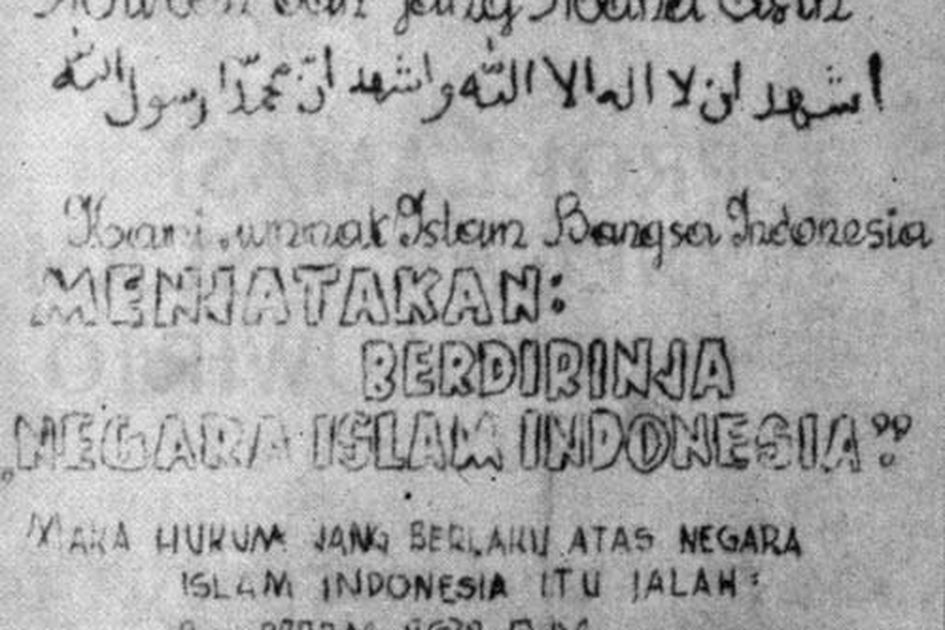 اشهد ان لا اله الا الله واشهد انّ محمدّا رسول الله
Kami, ummat Islam Bangsa Indonesia
MENJATAKAN:
BERDIRINJA
„NEGARA ISLAM INDONESIA”
MAKA HUKUM JANG BERLAKU ATAS NEGARA
ISLAM INDONESIA ITU IALAH: